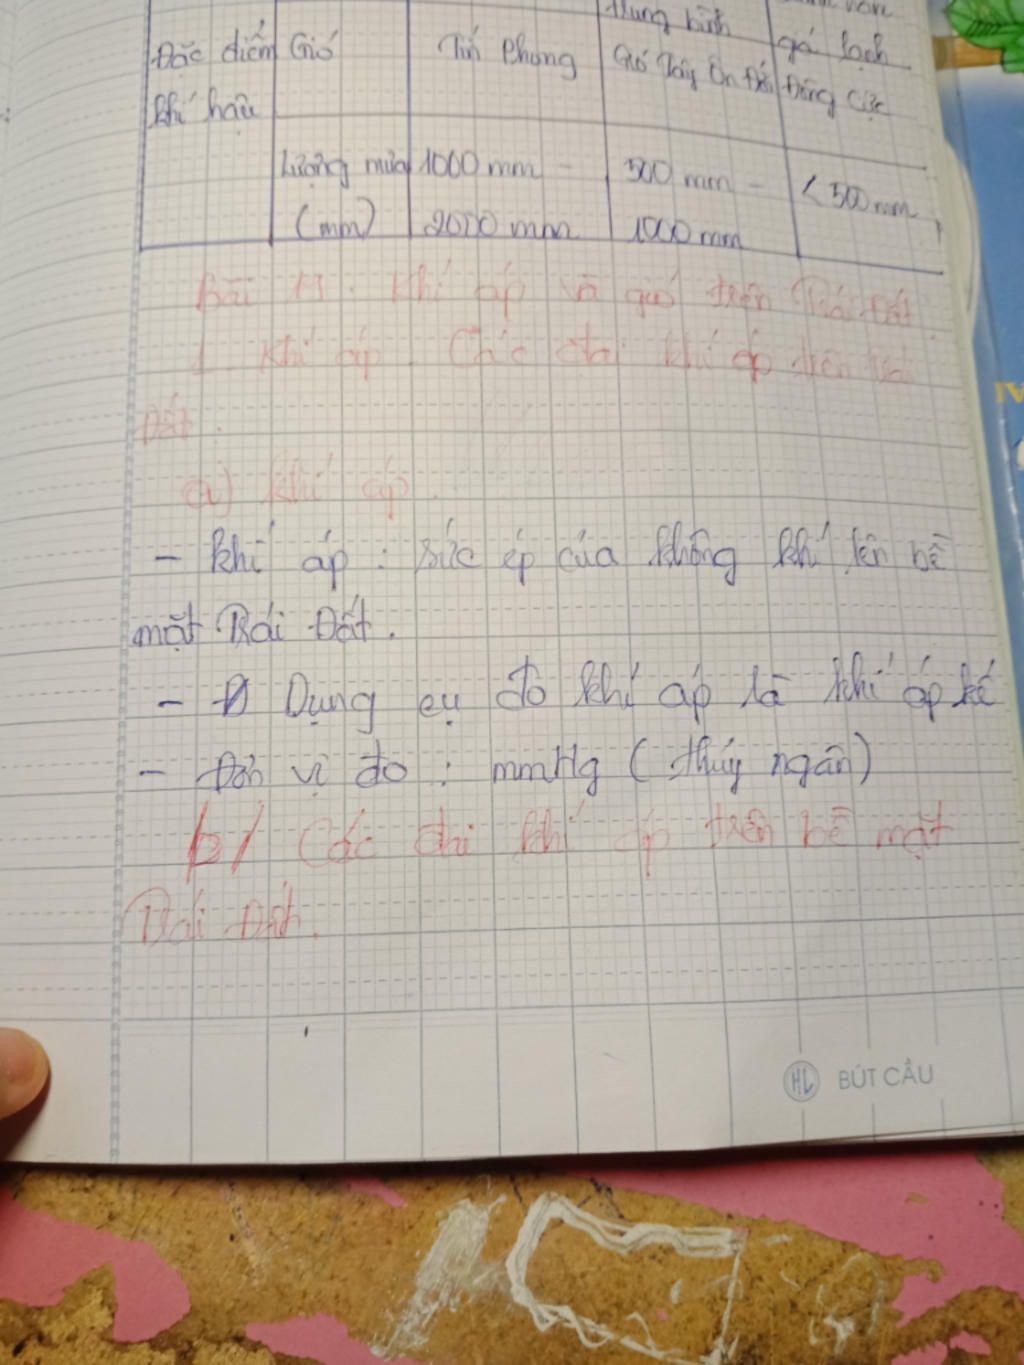 trung bình
Đặc điểm Gió Tín Phong Gió Tây Ôn Đới giá lạnh
khí hậu Đông Cực
Lượng mưa 1000 mm - 500 mm - < 500 mm
(mm) 2000 mm 1000 mm
Bài 13. Khí áp và gió trên Trái Đất
1. Khí áp. Các đai khí áp trên Trái
Đất.
a) Khí áp.
- Khí áp : sức ép của không khí lên bề
mặt Trái Đất.
- Dụng cụ đo khí áp là khí áp kế
- Đơn vị đo : mmHg (thủy ngân)
b/ Các đai khí áp trên bề mặt
Trái Đất.
HL BÚT CẦU